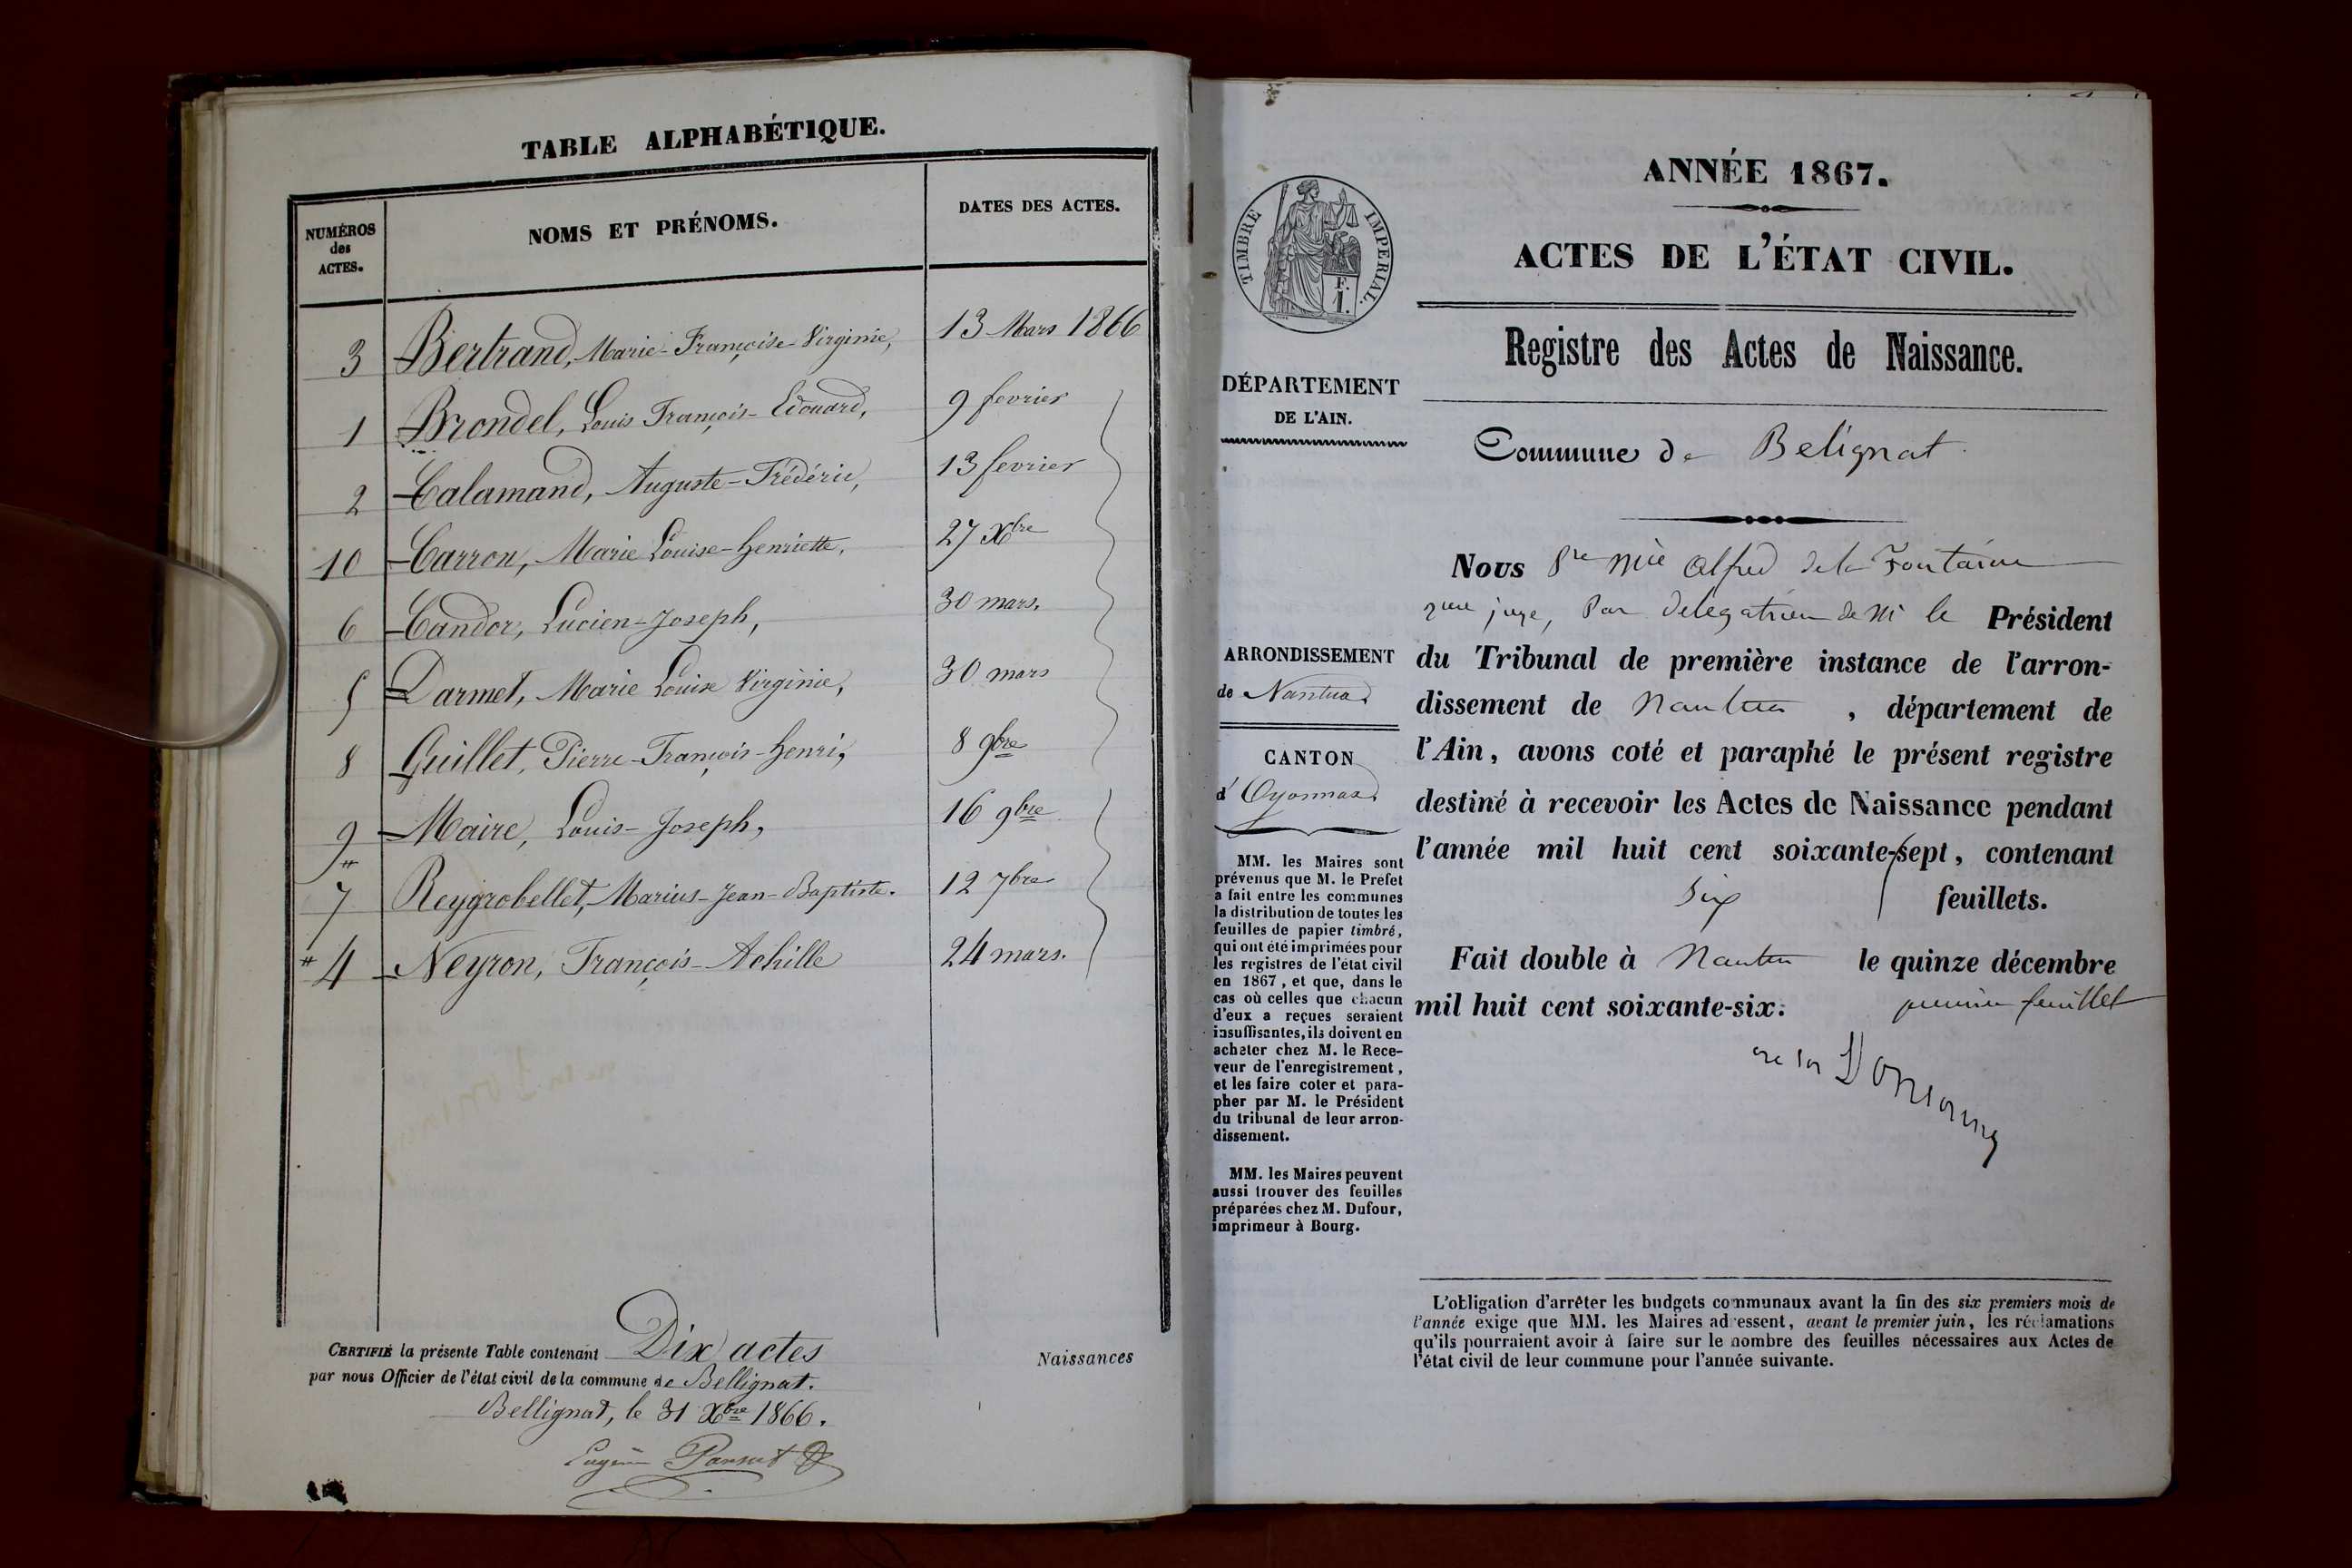 TABLE ALPHABÉTIQUE.
NUMÉROS des ACTES. NOMS ET PRÉNOMS. DATES DES ACTES.
3 Bertrand, Marie-Françoise-Virginie, 13 Mars 1866
1 Brondel, Louis François-Edouard, 9 fevrier
2 Calamand, Auguste-Frédéric, 13 fevrier
10 Carron, Marie Louise-henriette, 27 Xbre
6 Candor, Lucien-Joseph, 30 mars,
5 Darmet, Marie Louise Virginie, 30 mars
8 Guillet, Pierre-François-henri, 8 9bre
9 Maire, Louis-Joseph, 16 9bre
7 Reygrobellet, Marius-Jean-Baptiste. 12 7bre
# 4 Neyron, François-Achille 24 mars.
CERTIFIÉ la présente Table contenant Dix actes
Naissances
par nous Officier de l'état civil de la commune de Bellignat.
Bellignat, le 31 Xbre 1866.
TIMBRE IMPERIAL.
F.
1.
ANNÉE 1867.
ACTES DE L'ÉTAT CIVIL.
Registre des Actes de Naissance.
DÉPARTEMENT
DE L'AIN.
Commune de Belignat
ARRONDISSEMENT
de Nantua
CANTON
d'Oyonnax
MM. les Maires sont
prévenus que M. le Préfet
a fait entre les communes
la distribution de toutes les
feuilles de papier timbré,
qui ont été imprimées pour
les registres de l'état civil
en 1867, et que, dans le
cas où celles que chacun
d'eux a reçues seraient
insuffisantes, ils doivent en
acheter chez M. le Rece-
veur de l'enregistrement,
et les faire coter et para-
pher par M. le Président
du tribunal de leur arron-
dissement.
MM. les Maires peuvent
aussi trouver des feuilles
préparées chez M. Dufour,
imprimeur à Bourg.
Nous Alfred de la Fontaine
juge, par delegation de M le Président
du Tribunal de première instance de l'arron-
dissement de Nantua, département de
l'Ain, avons coté et paraphé le présent registre
destiné à recevoir les Actes de Naissance pendant
l'année mil huit cent soixante-sept, contenant
six feuillets.
Fait double à Nantua le quinze décembre
mil huit cent soixante-six. premier feuillet
L'obligation d'arrêter les budgets communaux avant la fin des six premiers mois de
l'année exige que MM. les Maires adressent, avant le premier juin, les réclamations
qu'ils pourraient avoir à faire sur le nombre des feuilles nécessaires aux Actes de
l'état civil de leur commune pour l'année suivante.